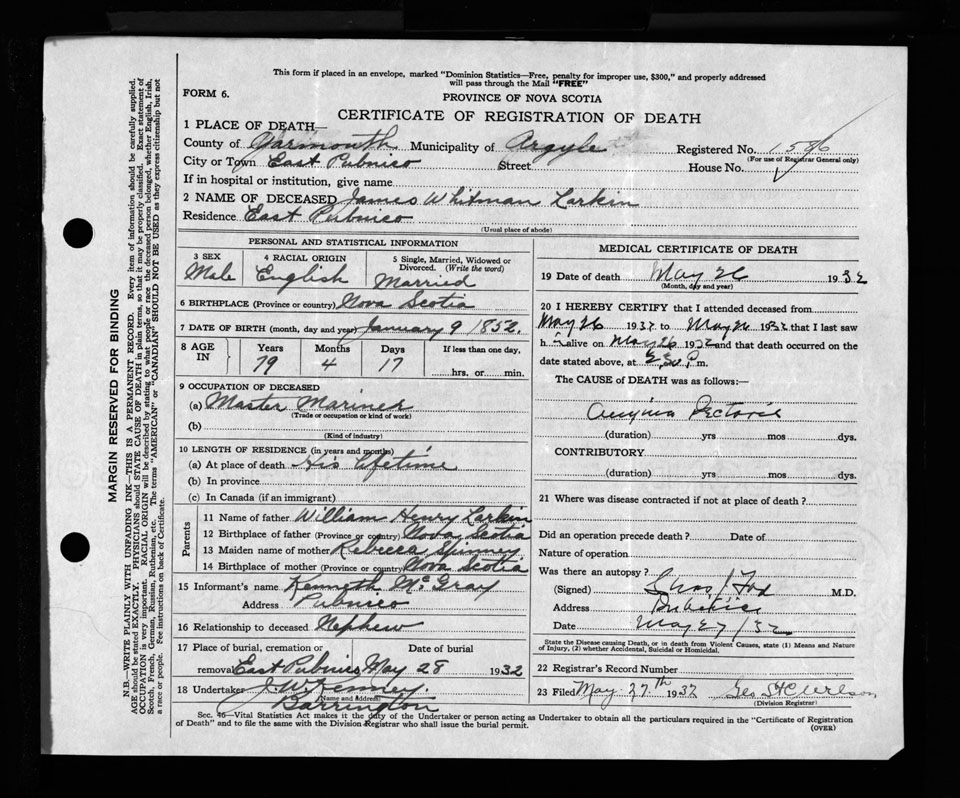 This form if placed in an envelope, marked "Dominion Statistics—Free, penalty for improper use, $300," and properly addressed
will pass through the Mail "FREE"
FORM 6.
PROVINCE OF NOVA SCOTIA
CERTIFICATE OF REGISTRATION OF DEATH
1 PLACE OF DEATH—
County of Yarmouth Municipality of Argyle Registered No. 1586
(For use of Registrar General only)
City or Town East Pubnico Street House No.
If in hospital or institution, give name
2 NAME OF DECEASED James Whitman Larkin
Residence East Pubnico
(Usual place of abode)
PERSONAL AND STATISTICAL INFORMATION
3 SEX 4 RACIAL ORIGIN 5 Single, Married, Widowed or
Divorced. (Write the word)
Male English Married
6 BIRTHPLACE (Province or country) Nova Scotia
7 DATE OF BIRTH (month, day and year) January 9 1852
8 AGE IN Years Months Days If less than one day,
79 4 17 hrs. or min.
9 OCCUPATION OF DECEASED
(a) Master Mariner
(Trade or occupation or kind of work)
(b)
(Kind of industry)
10 LENGTH OF RESIDENCE (in years and months)
(a) At place of death His lifetime
(b) In province
(c) In Canada (if an immigrant)
Parents
11 Name of father William Henry Larkin
12 Birthplace of father (Province or country) Nova Scotia
13 Maiden name of mother Rebecca Spinney
14 Birthplace of mother (Province or country) Nova Scotia
15 Informant's name Kenneth McGray
Address Pubnico
16 Relationship to deceased Nephew
17 Place of burial, cremation or Date of burial
removal East Pubnico May 28 1932
18 Undertaker J. W. Kenney.
(Name and Address)
Barrington
MEDICAL CERTIFICATE OF DEATH
19 Date of death May 26 1932
(Month, day and year)
20 I HEREBY CERTIFY that I attended deceased from
May 26 1932 to May 26 1932 that I last saw
h im alive on May 26 1932 and that death occurred on the
date stated above, at P.m.
The CAUSE of DEATH was as follows:—
Angina Pectoris
(duration) yrs mos dys.
CONTRIBUTORY
(duration) yrs mos dys.
21 Where was disease contracted if not at place of death?
Did an operation precede death? Date of
Nature of operation
Was there an autopsy?
(Signed) Chas J Fox M.D.
Address Pubnico
Date May 27/32
State the Disease causing Death, or in death from Violent Causes, state (1) Means and Nature
of Injury, (2) whether Accidental, Suicidal or Homicidal.
22 Registrar's Record Number
23 Filed May 27th 1932 Geo
(Division Registrar)
Sec. 46—Vital Statistics Act makes it the duty of the Undertaker or person acting as Undertaker to obtain all the particulars required in the "Certificate of Registration
of Death" and to file the same with the Division Registrar who shall issue the burial permit.
(OVER)
MARGIN RESERVED FOR BINDING
N.B.—WRITE PLAINLY WITH UNFADING INK—THIS IS A PERMANENT RECORD. Every item of information should be carefully supplied.
AGE should be stated EXACTLY. PHYSICIANS should STATE CAUSE OF DEATH in plain terms, so that it may be properly classified. Exact statement of
OCCUPATION is very important. RACIAL ORIGIN will be described by stating to what people or race the deceased person belonged, whether English, Irish,
Scotch, French, German, Russian, Ruthenian, etc. The terms "AMERICAN" or "CANADIAN" SHOULD NOT BE USED as they express citizenship but not
a race or people. Fee instructions on back of Certificate.